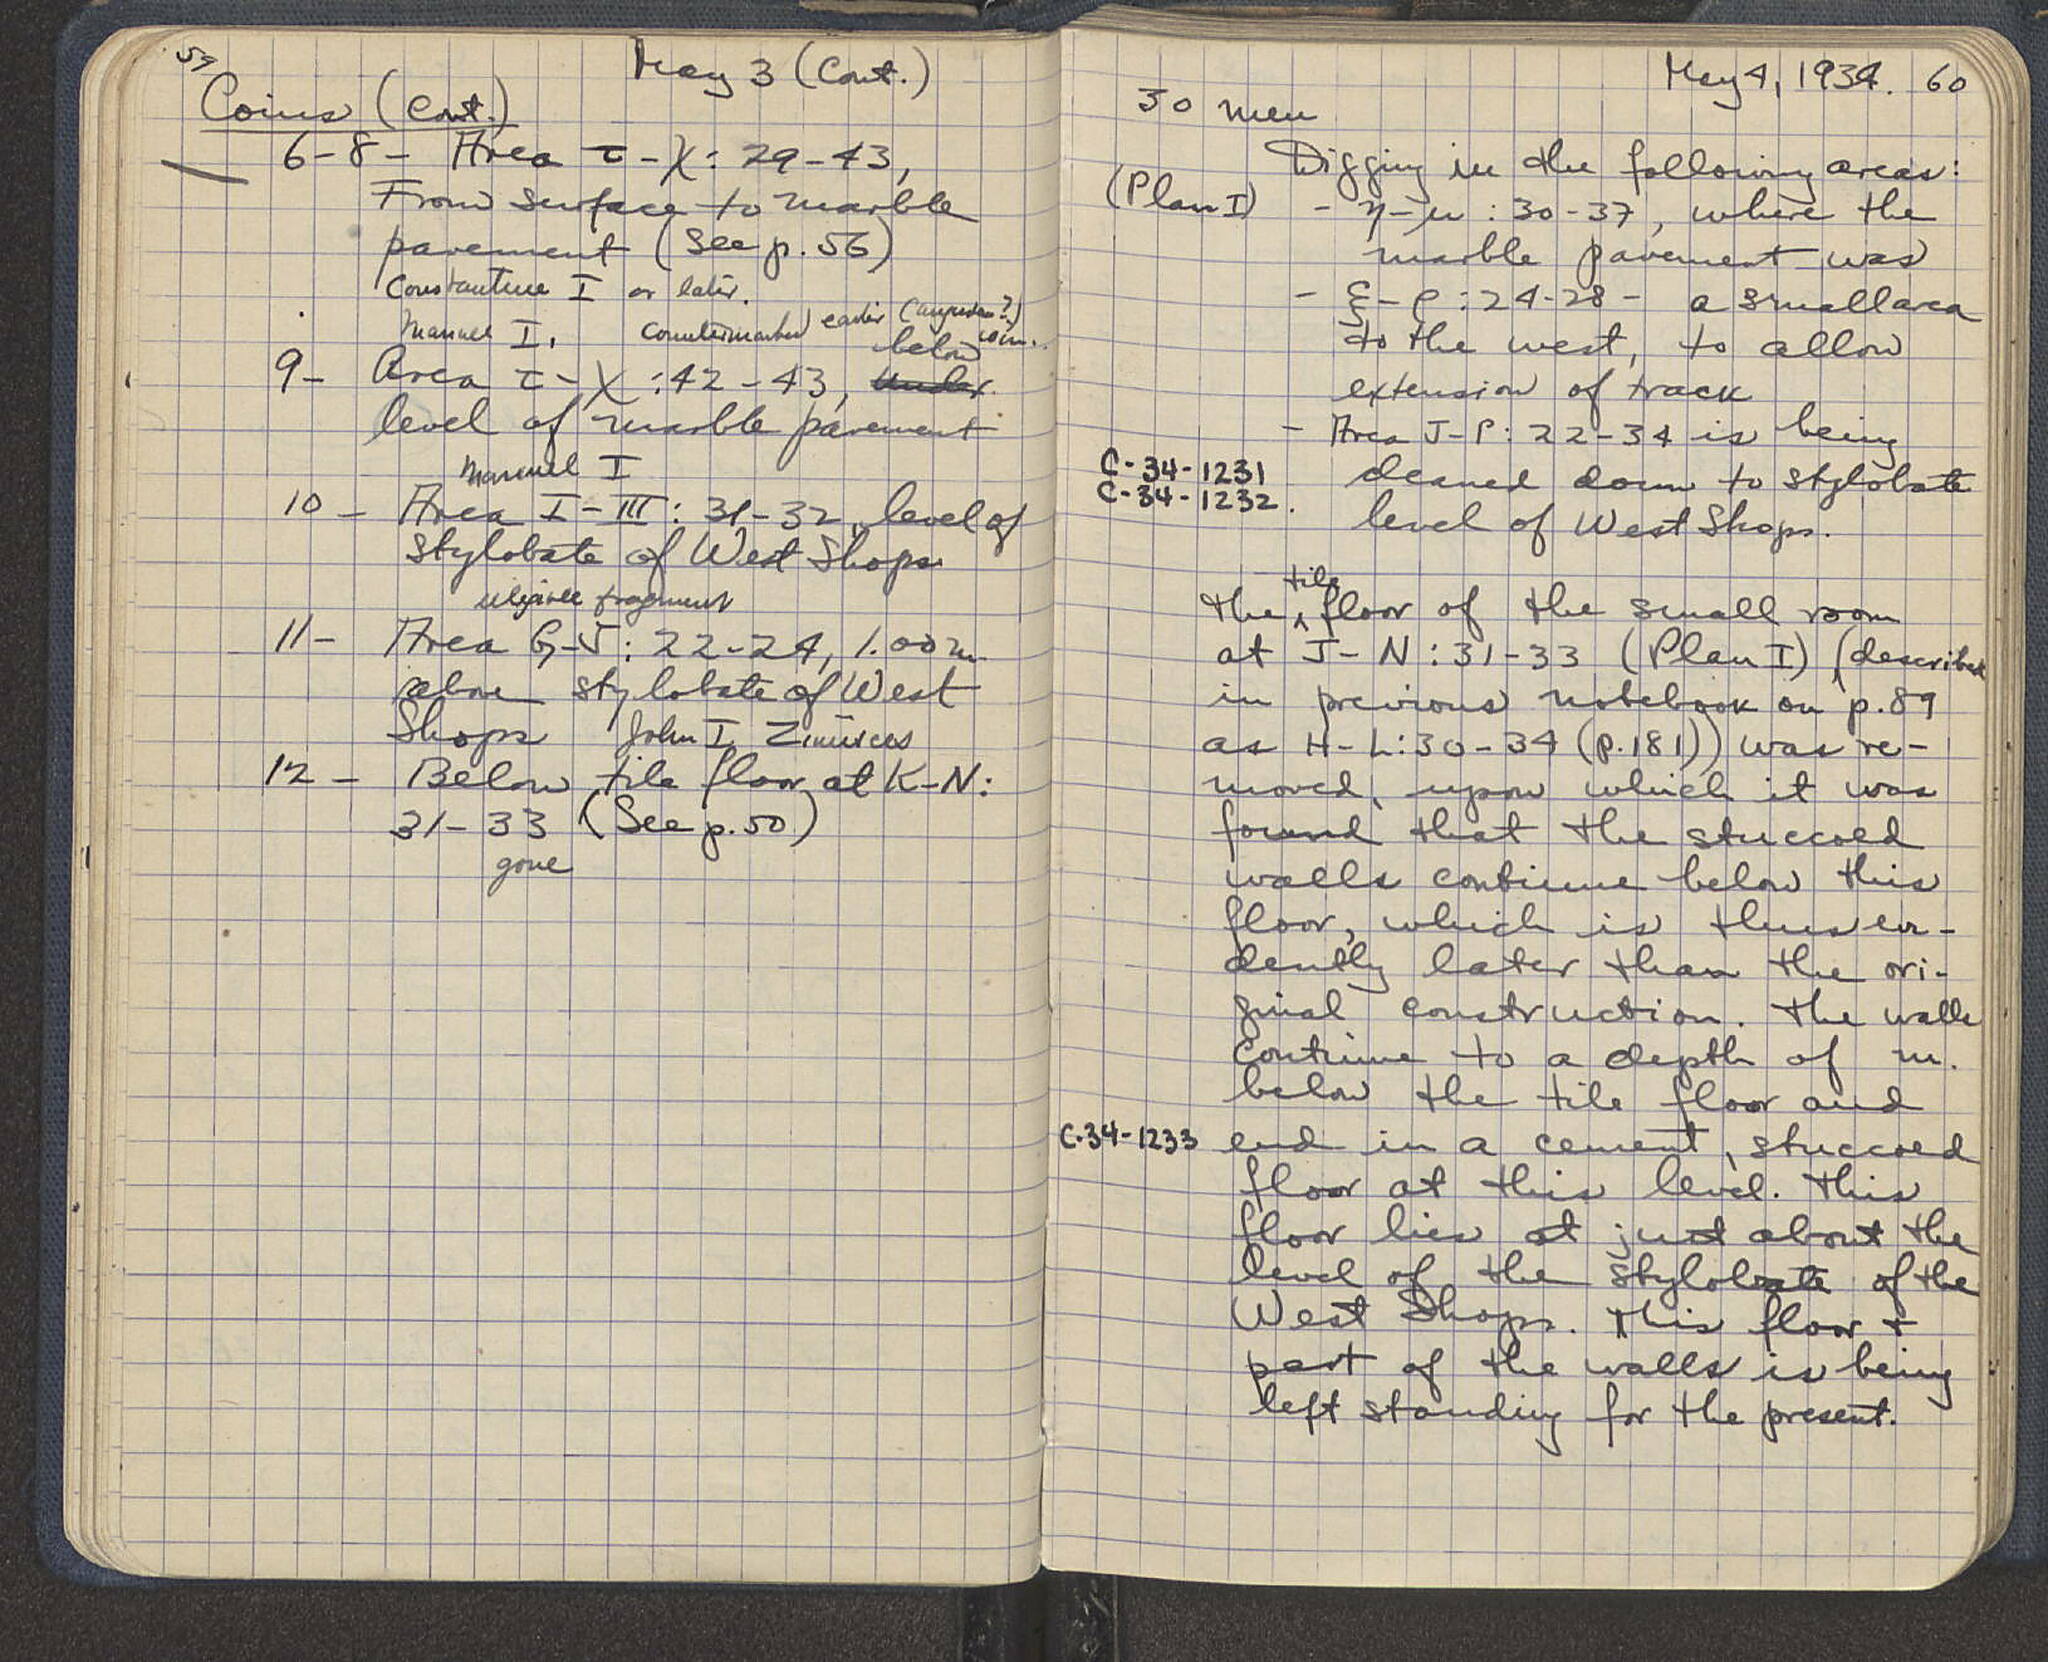 59
May 3 (Cont.)
Coins (Cont.)
6-8- Area τ-χ: 29-43,
From surface to marble
pavement (See p. 56)
Constantine I or later.
Manuel I, countermarked earlier ( ?) coin.
below
9- Area τ-χ: 42-43, under
level of marble pavement
Manuel I
10- Area I-III: 31-32, level of
stylobate of West Shops
fragment
11- Area G-J: 22-24, 1.00 m
above stylobate of West
Shops John I Zimisces
12- Below tile floor at K-N:
31-33 (See p. 50)
gone
May 4, 1934. 60
30 men
Digging in the following areas:
(Plan I) - η-μ: 30-37, where the
marble pavement was
- ξ-ρ: 24-28- a small area
to the west, to allow
extension of track
- Area J-P: 22-34 is being
C-34-1231
cleaned down to stylobate
C-34-1232.
level of West Shops.
tile
The ^ floor of the small room
at J-N: 31-33 (Plan I) (described
in previous notebook on p. 89
as H-L: 30-34 (p. 181)) was re-
moved, upon which it was
found that the stuccoed
walls continue below this
floor, which is thus evi-
dently later than the ori-
ginal construction. The walls
continue to a depth of m.
below the tile floor and
C-34-1233 end in a cement, stuccoed
floor at this level. This
floor lies at just about the
level of the stylobate of the
West Shops. This floor +
part of the walls is being
left standing for the present.